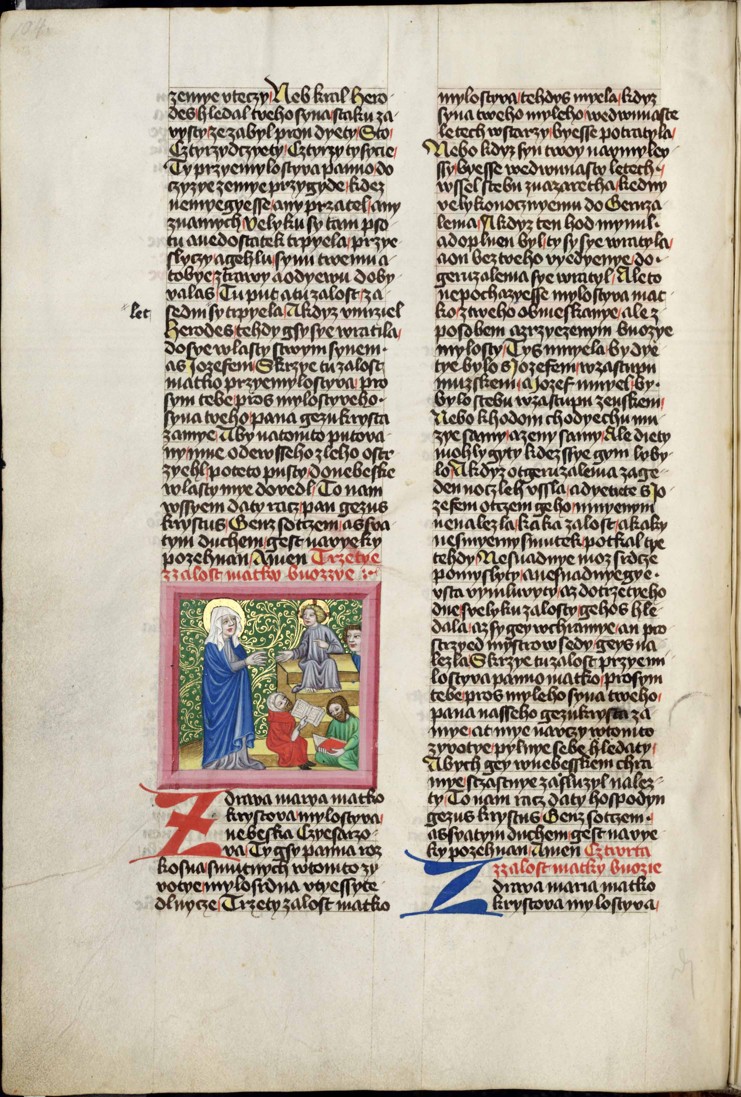 104
zemye vteczy Neb kral Hero-
des hledal tveho syna staku za
vysty ze zabyl pron dyety Sto
Cztyrzydczyety Cztyrzy tysyce
Ty przyemylostyva panno do
czyzye zemye przygyde kdez
nemyegyesse any przatel any
znamych velyku sy tam pso
tu a nedostatek trpyela przye
slyczy a gehlu synu twemu a
tobye ztrawy a odyewu doby
valas Tu put a tu zalost za
let
sedm sy trpyela A kdyz vmrziel
Herodes tehdy gsy sye wratila
do sye wlasty s twym synem
a s Jozefem Skrzye tu zalost
matko przyemylostyva pro
sym tebe pros mylostyveho
syna tveho pana gezu krysta
za mye Aby na tomto putova
ny mne od ewsseho zleho ostr
zyehl po teto pusty do nebeske
wlasty mye dovedl To nam
wssyem daty racz pan gezus
krystus Genz s otczem a s sva
tym duchem gest na vyeky
pozehnan Amen Trzetye
zzalost matky buozzye
Zdrava marya matko
krystova mylostyva
nebeska Czyesarzo-
va Ty gsy panna roz
kosna smutnych w tomto zy
votye mylosrdna vtyessyte
dlnycze Trzety zalost matko
mylostyva tehdys myela kdyz
syna tweho myleho we dwunaste
letech w starzy byesse potratyla
Nebo kdyz syn twoy naymyley
ssy byesse we dwunasty letech
wssel s tebu z nazaretha k edny
velykonocznyemu do Geruza
lema A kdyz ten hod mynul
a doplnen byl ty sy sye wratyla
a on bez tveho vyedyenye do
geruzalema sye wratyl Ale to
nepochazyesse mylostyva mat
ko z tweho obmeskanye ale z
posobem a zrzyezenym buozye
mylosty Tys mnyela by dye
tye bylo s Jozefem w zastupu
muzskem a Jozef mnyel by
bylo s tebu w zastupu zenskem
Nebo k hodom chodyechu mu
zye samy a zeny samy Ale diety
mohly gyty kdez ssye gym lyby
lo A kdyz ot geruzalema za ge
den nocz leh vssla a dyetete s Jo
zefem otczem geho mnyenym
nenalezla kaka zalost a kaky
nesmyerny smutek potkal tye
tehdy Nesnadnye moz srdcze
pomyslyty a nesnadnye gye
vsta vymluvyty az do trzetyeho
dne s velyku zalosty gehos hle
dala az sy gey w chramye an pro
strzyed mystrow sedy geys na
lezla Skrzye tu zalost przyemi
lostyva panno matko prosym
tebe pros myleho syna tweho
pana nasseho gezu krysta za
mye at mye navczy w tomto
zyvotye pylnye sebe hledaty
Abych gey w nebesskem chra
mye sczastnye zasluzyl nalez-
ty To nam racz daty hospodyn
gezus krystus Genz s otczem
a s svatym duchem gest na vye
ky pozehnan Amen Cztwrta
zzalost matky buozie
Zdrava maria matko
krystova mylostyva